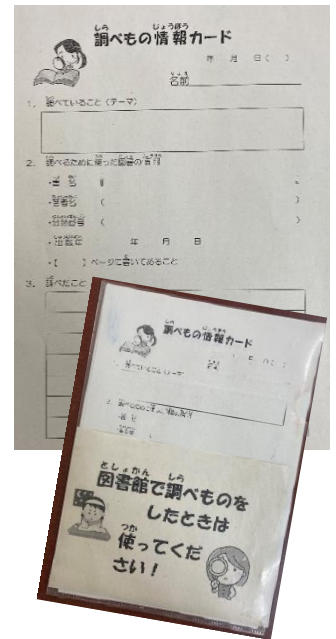 調べもの情報カード
年 月 日( )
名前
1. 調べていること(テーマ)
2. 調べるために使った図書の情報
・書名
・著者名 ( )
・( )
・出版年 年 月 日
・【 】ページに書いてあること
3. 調べたこと
調べもの情報カード
月 日( )
名前
図書館で調べものを
したときは
使ってくだ
さい！